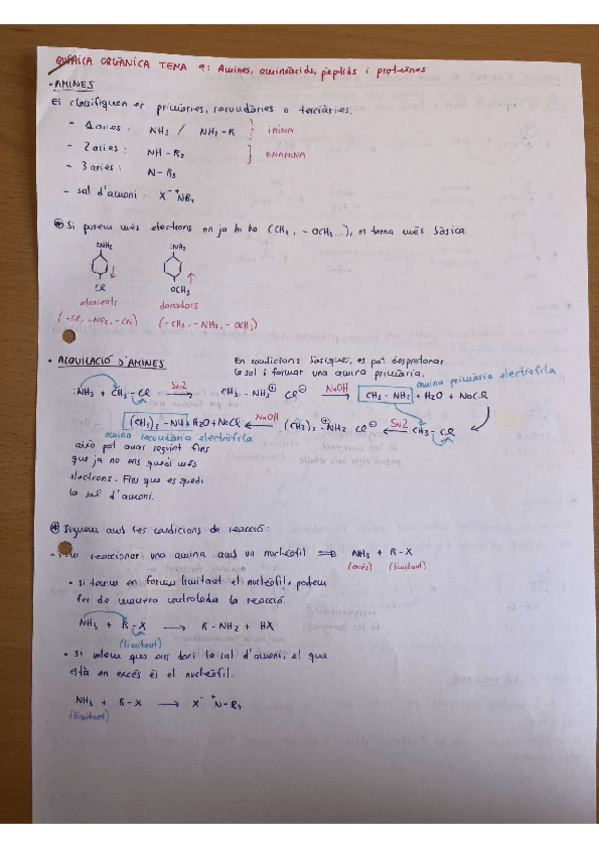 QUÍMICA ORGÀNICA TEMA 9: Amines, aminoàcids, pèptids i proteïnes
· AMINES
Es classifiquen en primàries, secundàries o terciàries.
- 1aries: NH3 / NH2-R } IMINA
- 2aries: NH-R2 } ENAMINA
- 3aries: N-R3
- sal d'amoni: X⁻ ⁺NR4
⊛ Si posem més electrons en ja hi ha (CH3, -OCH3...), es torna més bàsica
:NH2 :NH2
Cl OCH3
atraients donadors
(-Cl, -NO2, -CN) (-CH3, -NH2, -OCH3)
· ALQUILACIÓ D'AMINES
En condicions bàsiques, es pot desprotonar
la sal i formar una amina primària.
amina primària electròfila
:NH3 + CH3-Cl → SN2 CH3-NH3⊕ Cl⊖ → NaOH CH3-NH2 + H2O + NaCl
(CH3)2-NH + H2O + NaCl ← NaOH (CH3)2-⊕NH2 Cl⊖ ← SN2 CH3-Cl
amina secundària electròfila
això pot anar seguint fins
que ja no ens quedi més
electrons. Fins que es quedi
la sal d'amoni.
⊛ Juguem amb les condicions de reacció:
reaccionar una amina amb un nucleòfil ⇒ NH3 + R-X
(excés) (limitant)
· si tenim en forma limitant el nucleòfil, podem
fer de manera controlada la reacció.
NH3 + R-X → R-NH2 + HX
(limitant)
· si volem que ens doni la sal d'amoni, el que
està en excés és el nucleòfil.
NH3 + R-X → X⁻ ⁺N-R4
(limitant)